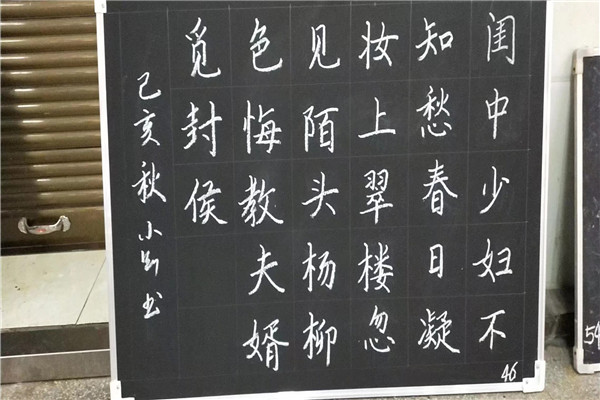 闺中少妇不
知愁春日凝
妆上翠楼忽
见陌头杨柳
色悔教夫婿
觅封侯
己亥秋小书
46
54